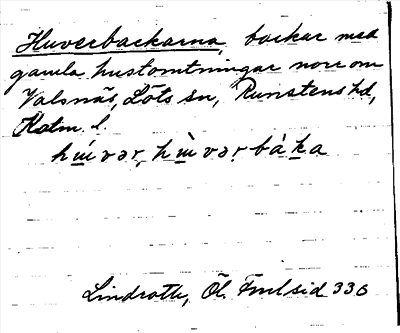 Huverbackarna, backar med
gamla hustomtningar norr om
Valsnäs, Löts sn, Runstens hd,
Kalm. l.
hu̲̇vər, hu̲̇vər bàka
Lindroth, Öl. Fml sid 330